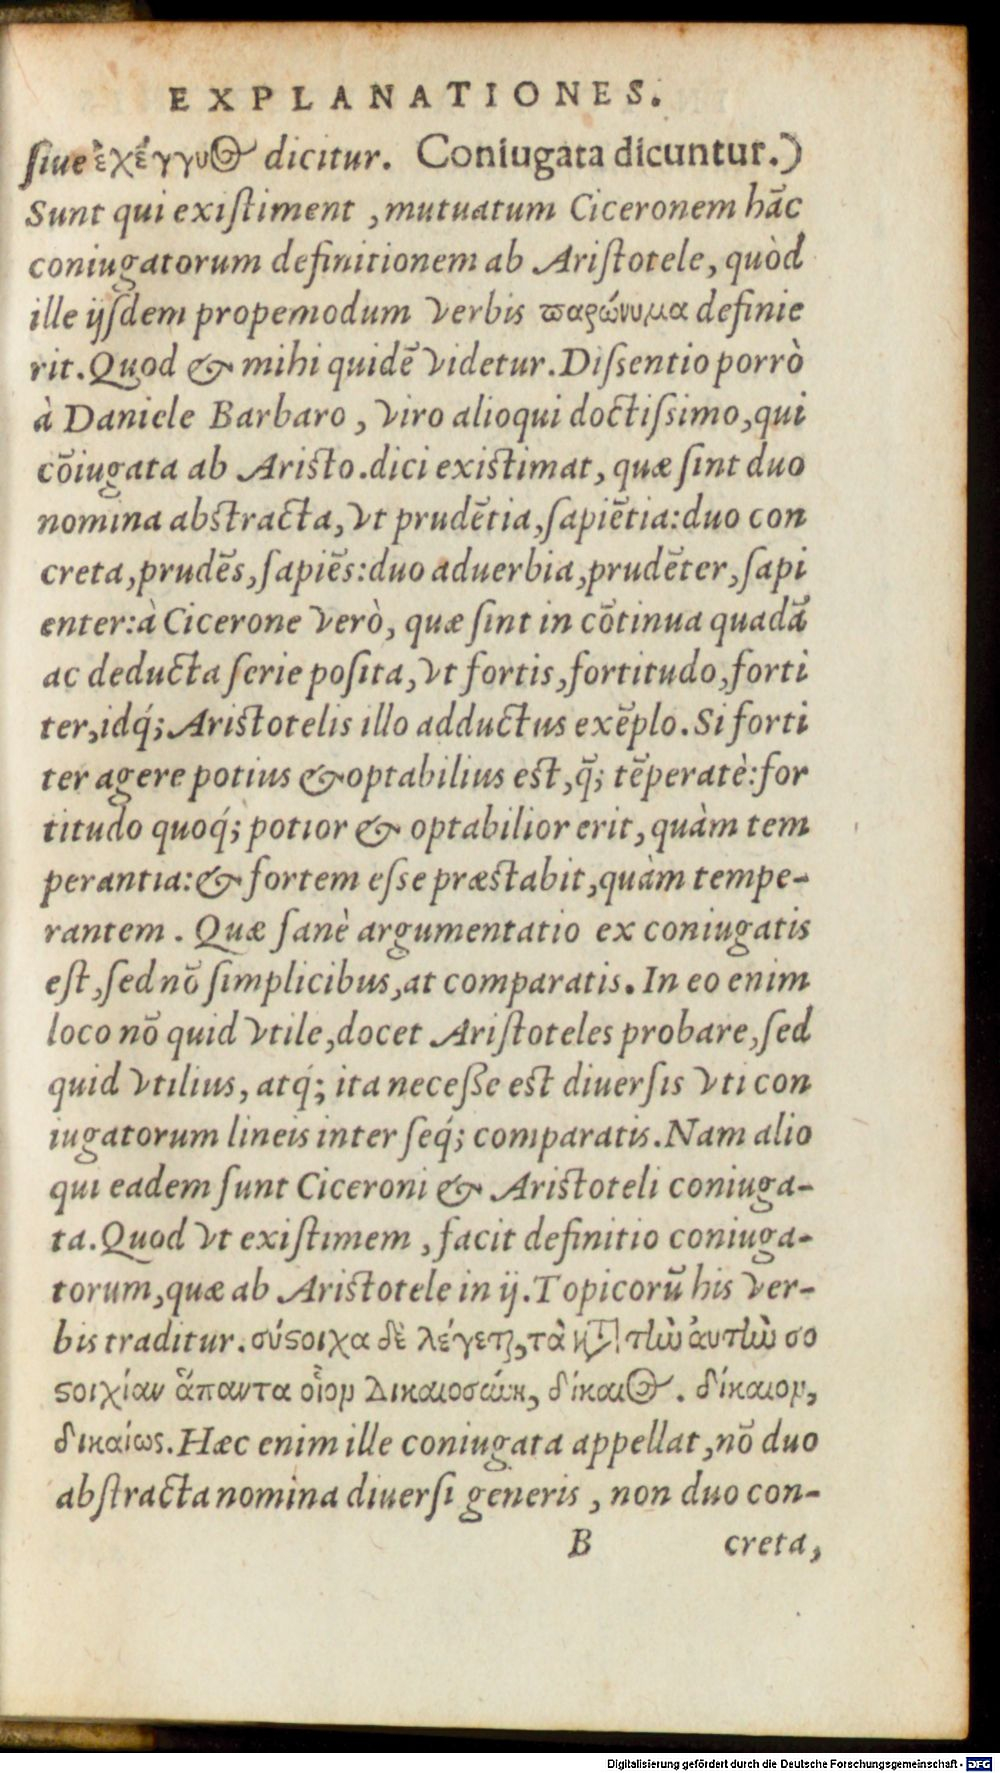 EXPLANATIONES.
ſiue ἐχέγγυος dicitur. Coniugata dicuntur.)
Sunt qui exiſtiment, mutuatum Ciceronem hāc
coniugatorum definitionem ab Ariſtotele, quòd
ille ijſdem propemodum verbis παρώνυμα definie
rit. Quod & mihi quidē videtur. Diſſentio porrò
à Daniele Barbaro, viro alioqui doctiſsimo, qui
cōiugata ab Ariſto. dici exiſtimat, quæ ſint duo
nomina abſtracta, vt prudētia, ſapiētia: duo con
creta, prudēs, ſapiēs: duo aduerbia, prudēter, ſapi
enter: à Cicerone verò, quæ ſint in cōtinua quadā
ac deducta ſerie poſita, vt fortis, fortitudo, forti
ter, idq́; Ariſtotelis illo adductus exēplo. Si forti
ter agere potius & optabilius eſt, q̄; tēperatè: for
titudo quoq́; potior & optabilior erit, quàm tem
perantia: & fortem eſſe præſtabit, quàm tempe-
rantem. Quæ ſanè argumentatio ex coniugatis
eſt, ſed nō ſimplicibus, at comparatis. In eo enim
loco nō quid vtile, docet Ariſtoteles probare, ſed
quid vtilius, atq́; ita neceſſe eſt diuerſis vti con
iugatorum lineis inter ſeq́; comparatis. Nam alio
qui eadem ſunt Ciceroni & Ariſtoteli coniuga-
ta. Quod vt exiſtimem, facit definitio coniuga-
torum, quæ ab Ariſtotele in ij. Topicorū his ver-
bis traditur. σύϛοιχα δὲ λέγεται, τὰ κατὰ τὴν ἀυτὴν σο
ϛοιχίαν ἅπαντα οἷον Δικαιοσύνη, δίκαιος. δίκαιον,
δικαίως. Hæc enim ille coniugata appellat, nō duo
abſtracta nomina diuerſi generis, non duo con-
B creta,
Digitalisierung gefördert durch die Deutsche Forschungsgemeinschaft - DFG